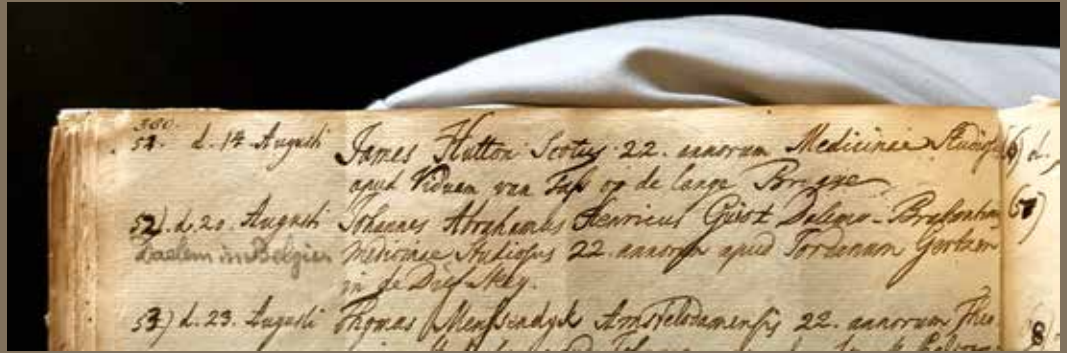 380.
51. d. 14 Augusti James Hutton Scotus 22. annorum Medicinae Studiosus
apud Viduam van Tass op de lange Brugge
52). d. 20. Augusti Johannes Abrahamus Henricus Guiot Dalemo-Brabantinus
Daelem in Belgien Medicinae Studiosus 22. annorum apud Jordanum
in de Dief-steg.
53) d. 23. Augusti Thomas Amstelodamensis 22. annorum Theo
(6) d.
(7)
8